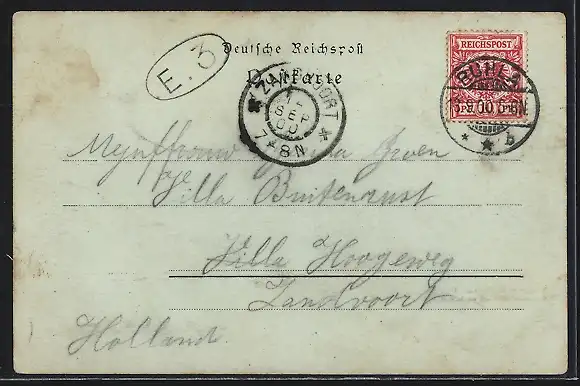 Deutsche Reichspost
Postkarte
E. 3
REICHSPOST
BÜHL
13.9.00 6-8N
* * b
ZANDVOORT
14 SEP 00
7-8N
Mejuffrouw
Villa Buitenrust
Villa Hoogeweg
Zandvoort
Holland.